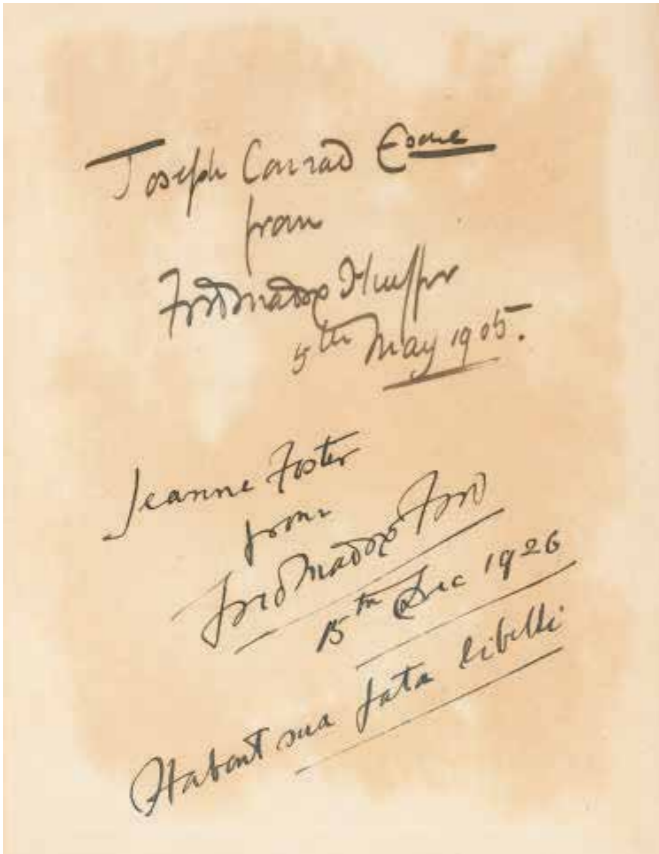 Joseph Conrad Esqre
from
Ford Madox Hueffer
5th May 1905.
Jeanne Foster
from
Ford Madox Ford
15th Dec 1926
Habent sua fata libelli